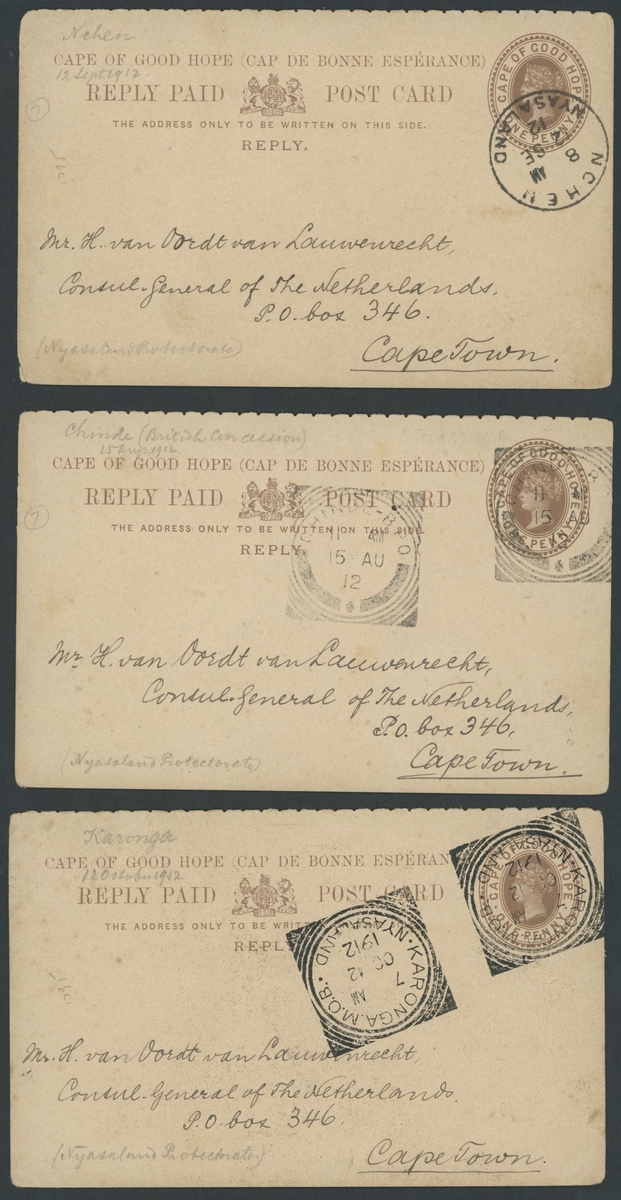 Ncheu
CAPE OF GOOD HOPE (CAP DE BONNE ESPÉRANCE)
12 Sept 1912
REPLY PAID POST CARD
THE ADDRESS ONLY TO BE WRITTEN ON THIS SIDE.
REPLY.
CAPE OF GOOD HOPE
ONE PENNY
NCHEU
NYASALAND
AM
8
SE
12
7
Mr. H. van Oordt van Lauwenrecht,
Consul-General of The Netherlands,
P.O. box 346.
(Nyasaland Protectorate)
Cape Town.
Chinde (British Concession)
15 Aug 1912
CAPE OF GOOD HOPE (CAP DE BONNE ESPÉRANCE)
REPLY PAID POST CARD
THE ADDRESS ONLY TO BE WRITTEN ON THIS SIDE.
REPLY.
CAPE OF GOOD HOPE
ONE PENNY
11 AM
15 AU
12
11
15
7
Mr. H. van Oordt van Lauwenrecht,
Consul-General of The Netherlands,
P.O. box 346,
(Nyasaland Protectorate)
Cape Town.
Karonga
CAPE OF GOOD HOPE (CAP DE BONNE ESPÉRAN
12 October 1912
REPLY PAID POST CARD
THE ADDRESS ONLY TO BE WRITTEN ON
REPLY
CAPE OF GOOD HOPE
ONE PENNY
KARONGA.M.O.B. NYASALAND
AM
7
OC 12
1912
Mr. H. van Oordt van Lauwenrecht,
Consul-General of The Netherlands.
P.O. box 346.
(Nyasaland Protectorate)
Cape Town.